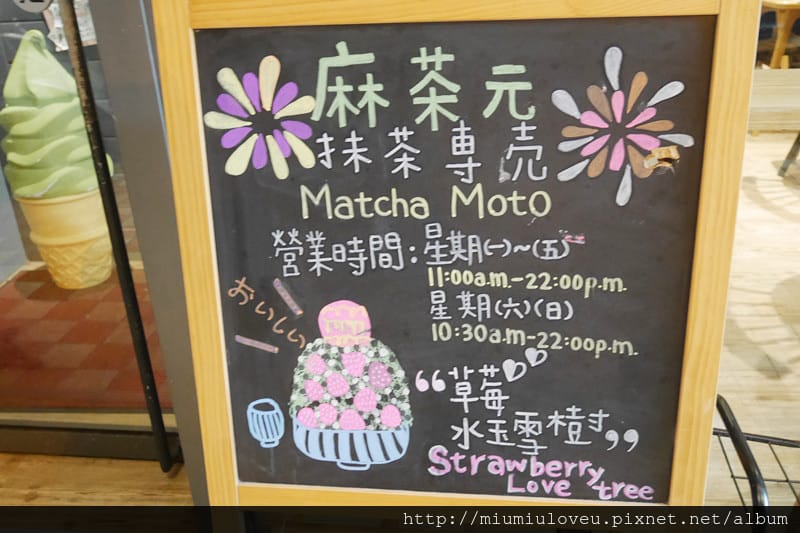 麻茶元
抹茶専売
Matcha Moto
營業時間:星期(一)~(五)
11:00a.m.-22:00p.m.
星期(六)(日)
10:30a.m-22:00p.m.
おいしい
“草莓
水玉雪樹”
Strawberry
Love tree
http://miumiuloveu.pixnet.net/album